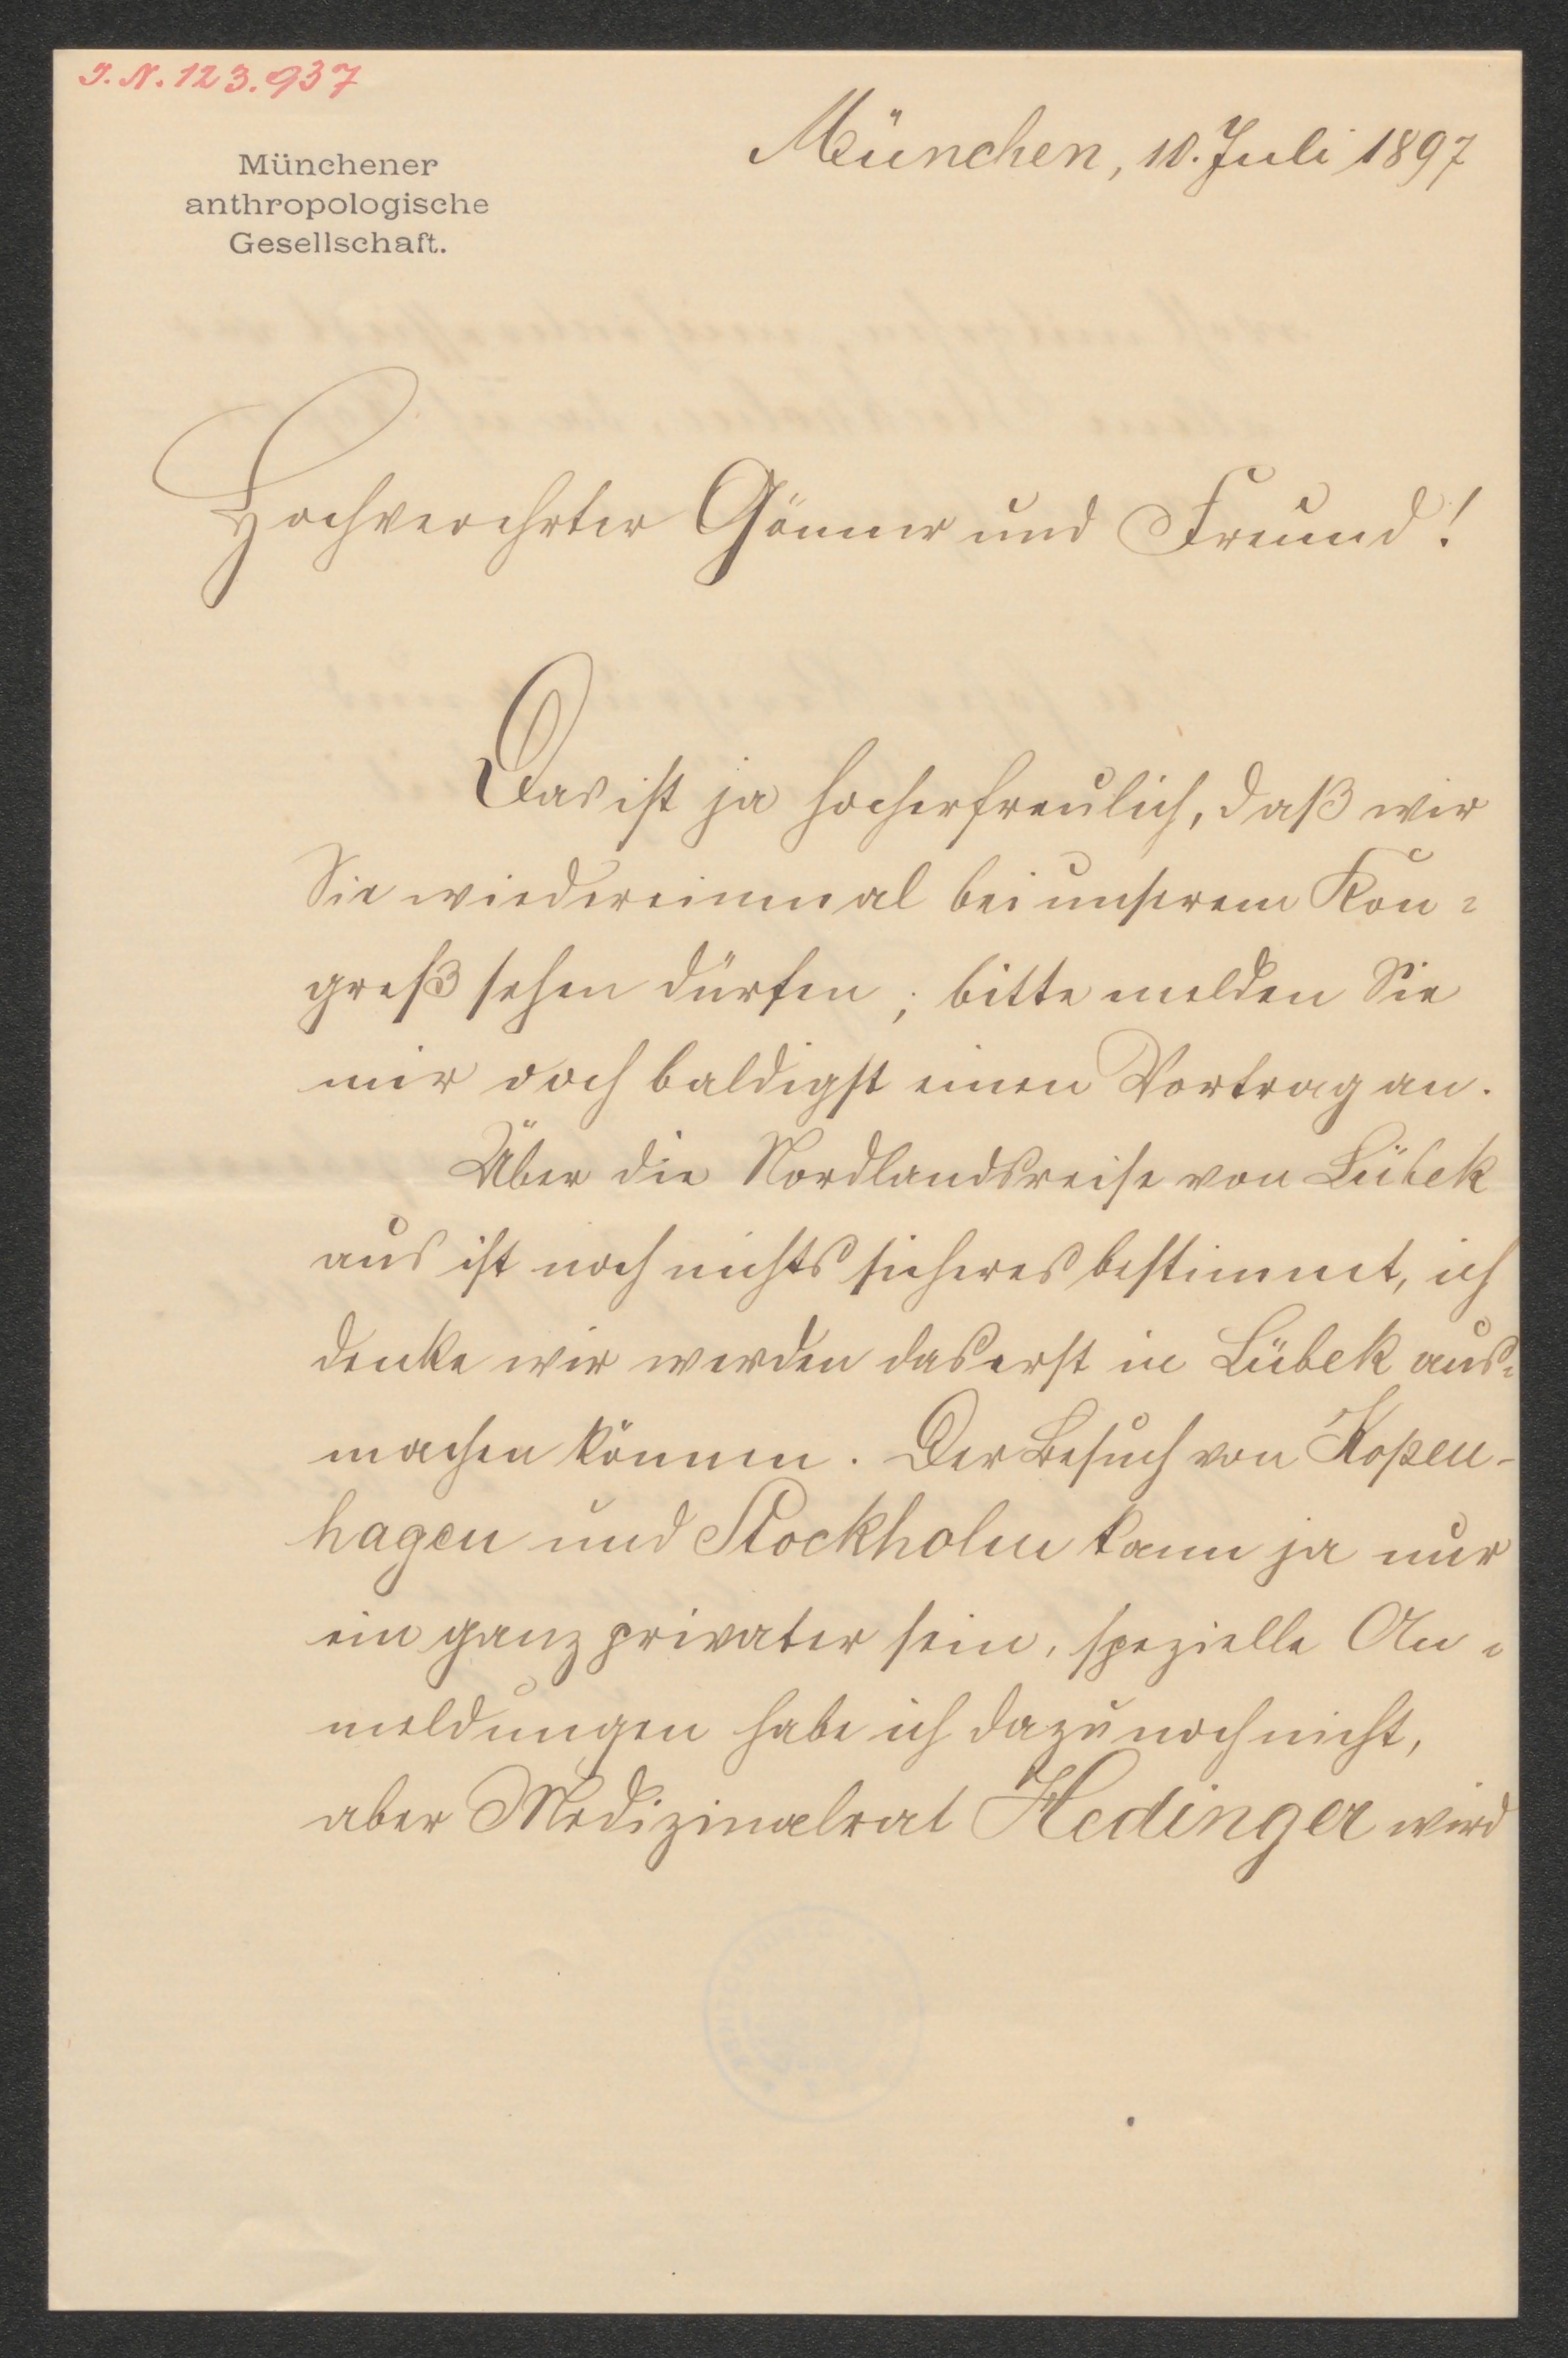 J. N. 123.937
München, 10. Juli 1897
Münchener
anthropologische
Gesellschaft.
Hochverehrter Gönner und Freund!
Das ist ja hocherfreulich, daß wir
Sie wiedereinmal bei unserem Kon-
greß sehen dürfen; bitte melden Sie
mir doch baldigst einen Vortrag an.
Über die Nordlandsreise von Lübek
aus ist noch nichts sicheres bestimmt, ich
denke wir werden das erst in Lübek aus-
machen können. Der Besuch von Kopen-
hagen und Stockholm kann ja nur
ein ganz privater sein, spezielle An-
meldungen habe ich dazu noch nicht,
aber Medizinalrat Hedinger wird